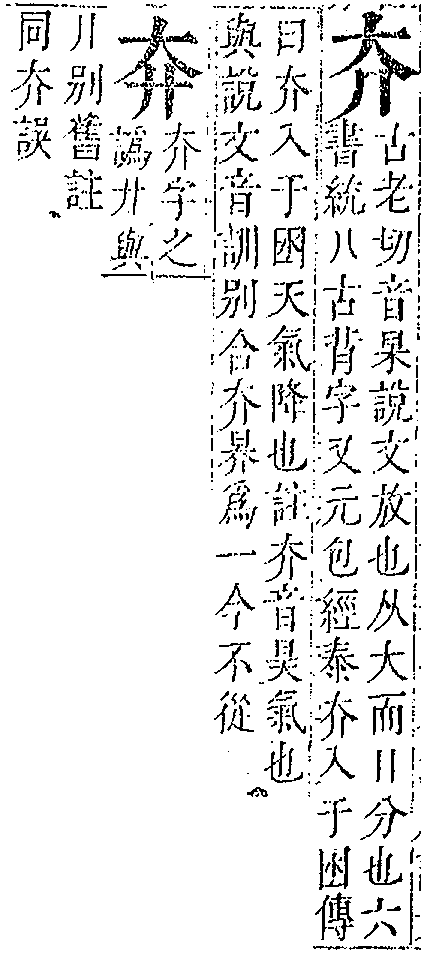 夰
古老切音杲說文放也从大而八分也六
書統八古背字又元包經泰夰入于囦傳
曰夰入于囦天氣降也註夰音昊氣也
與說文音訓别合夰昦爲一今不從
夰字之
譌廾與
八别舊註
同夰誤